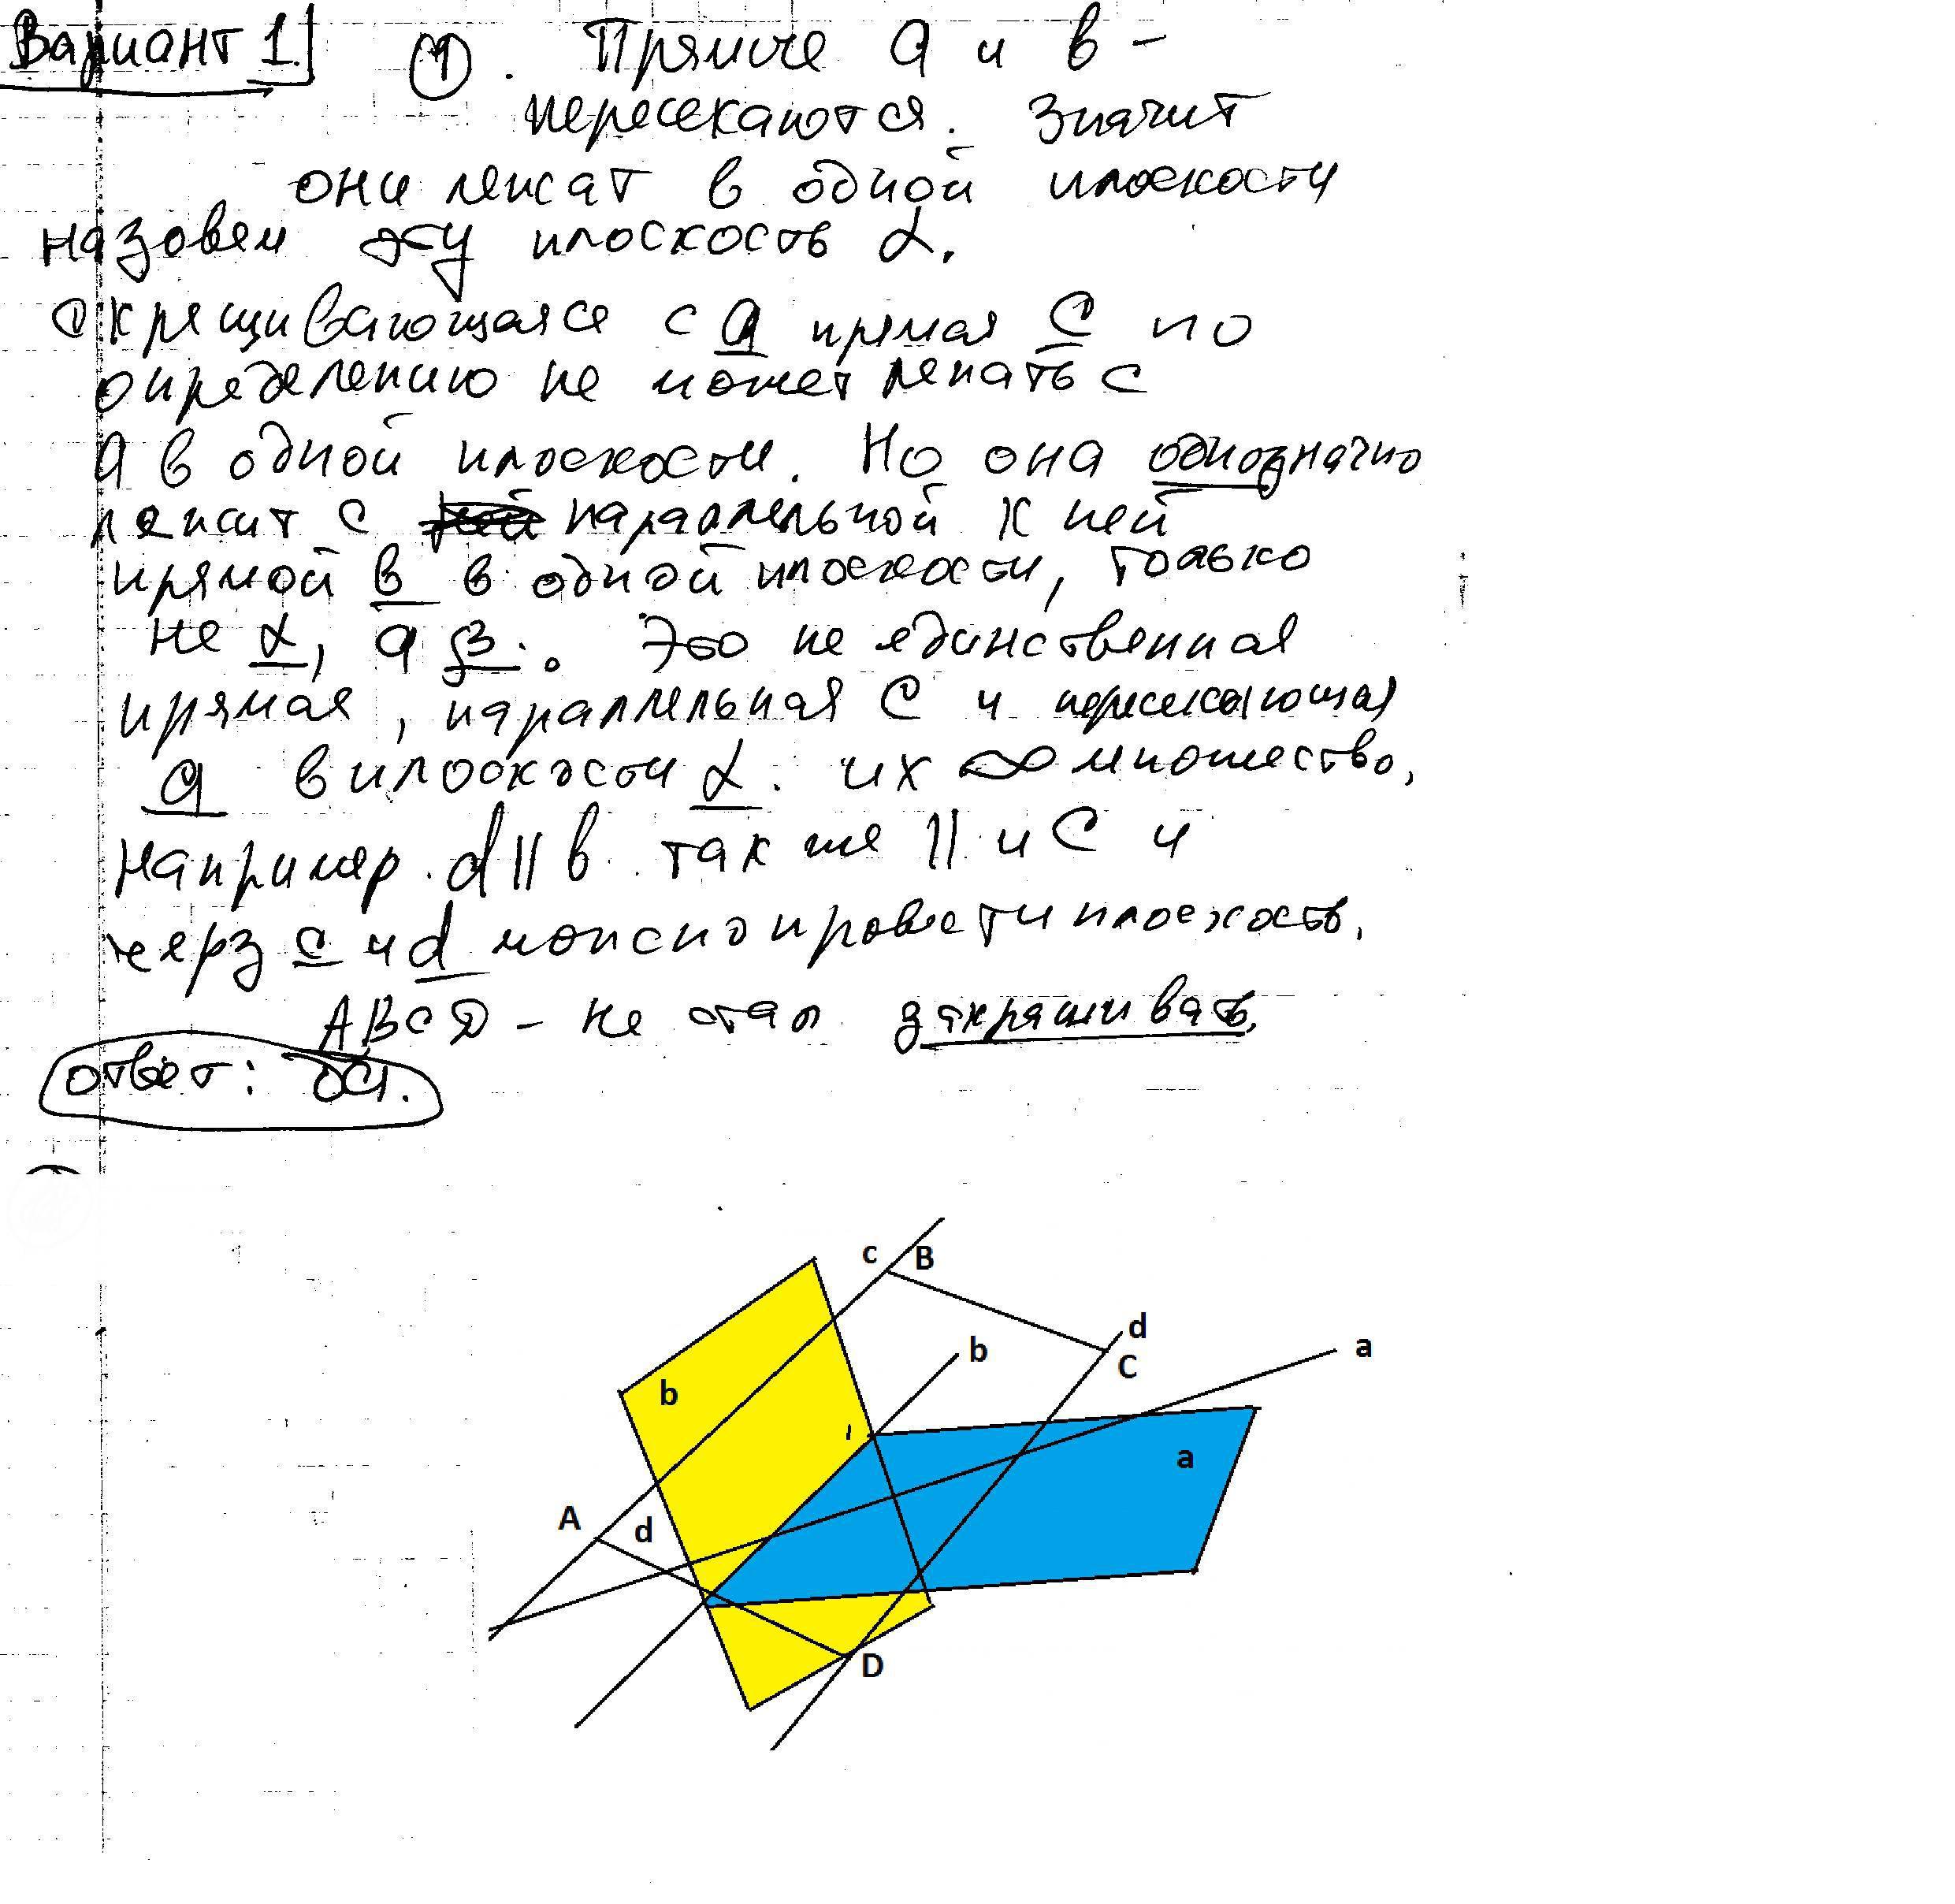 Вариант 1. ① . Прямые а и в -
пересекаются. Значит
они лежат в одной плоскости
назовем эту плоскость α.
Скрещивающаяся с а прямая С по
определению не может лежать с
а в одной плоскости. Но она однозначно
лежит с параллельной к ней
прямой в в одной плоскости, только
не α, а β. Это не единственная
прямая, параллельная С и пересекающая
а в плоскости α. их ∞ множество,
Например. d || в. так же || и С и
черз с и d можно провести плоскость.
ABCD - не стал закрашивать.
ответ:
c B
d
b a
C
b
a
A d
D